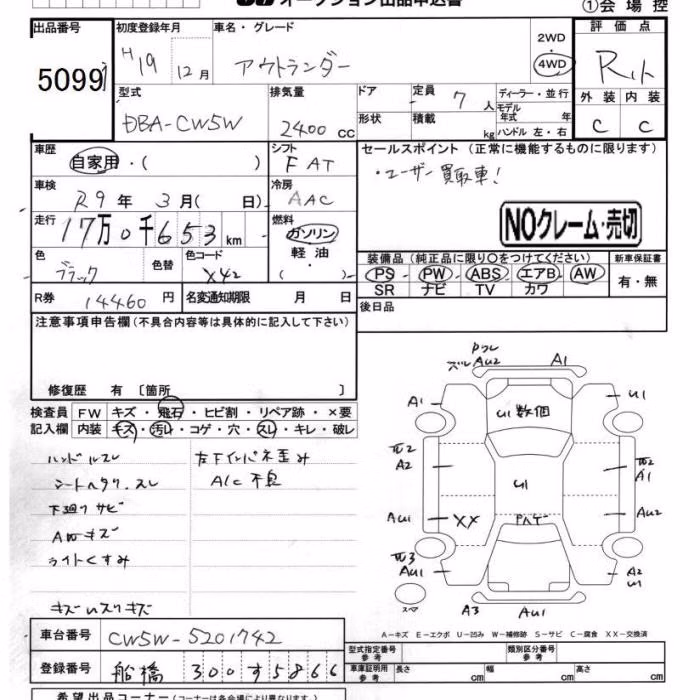 オークション出品申込書
①会場控
出品番号 初度登録年月 車名・グレード 評価点
50991
H19 12月 アウトランダー 2WD
4WD
R
型式 排気量 ドア 定員 7 人 ディーラー・並行
DBA-CW5W 2400 CC 形状 積載 kg モデル年式 年 ハンドル 左・右
外装 内装
C C
車歴 シフト セールスポイント (正常に機能するものに限ります)
自家用・( ) F AT ・ユーザー買取車!
車検 冷房
R9年 3月( 日) AAC
走行 燃料
17万0千653km ガソリン
軽油
( )
NOクレーム・売切
色 色替 色コード
ブラック X42
装備品 (純正品に限り○をつけてください) 新車保証書
PS PW ABS エアB AW 有・無
SR ナビ TV カワ
R券 14460円 名変通知期限 月 日
後日品
注意事項申告欄(不具合内容等は具体的に記入して下さい)
修復歴 有 〔箇所 〕
検査員 FW キズ・飛石・ヒビ割・リペア跡・×要
記入欄 内装 キズ・汚れ・コゲ・穴・スレ・キレ・破レ
ハンドルスレ
シートヘタリ、スレ
下廻りサビ
AWキズ
ライトくすみ
左下インパネ歪み
A/C不良
Au2 A1
A1 U1
U1 数個
A2
A1
U1
Au1 XX Au2
Au1 A2
スペア A3 Au1
A-キズ E-エクボ U-凹み W-補修跡 S-サビ C-腐食 XX-交換済
車台番号 CW5W-5201742
登録番号 船橋 300 す 5866
型式指定番号 参考 類別区分番号 参考
車庫証明用 参考 長さ cm 幅 cm 高さ cm
希望出品コーナー (コーナーは各会場により異なります)